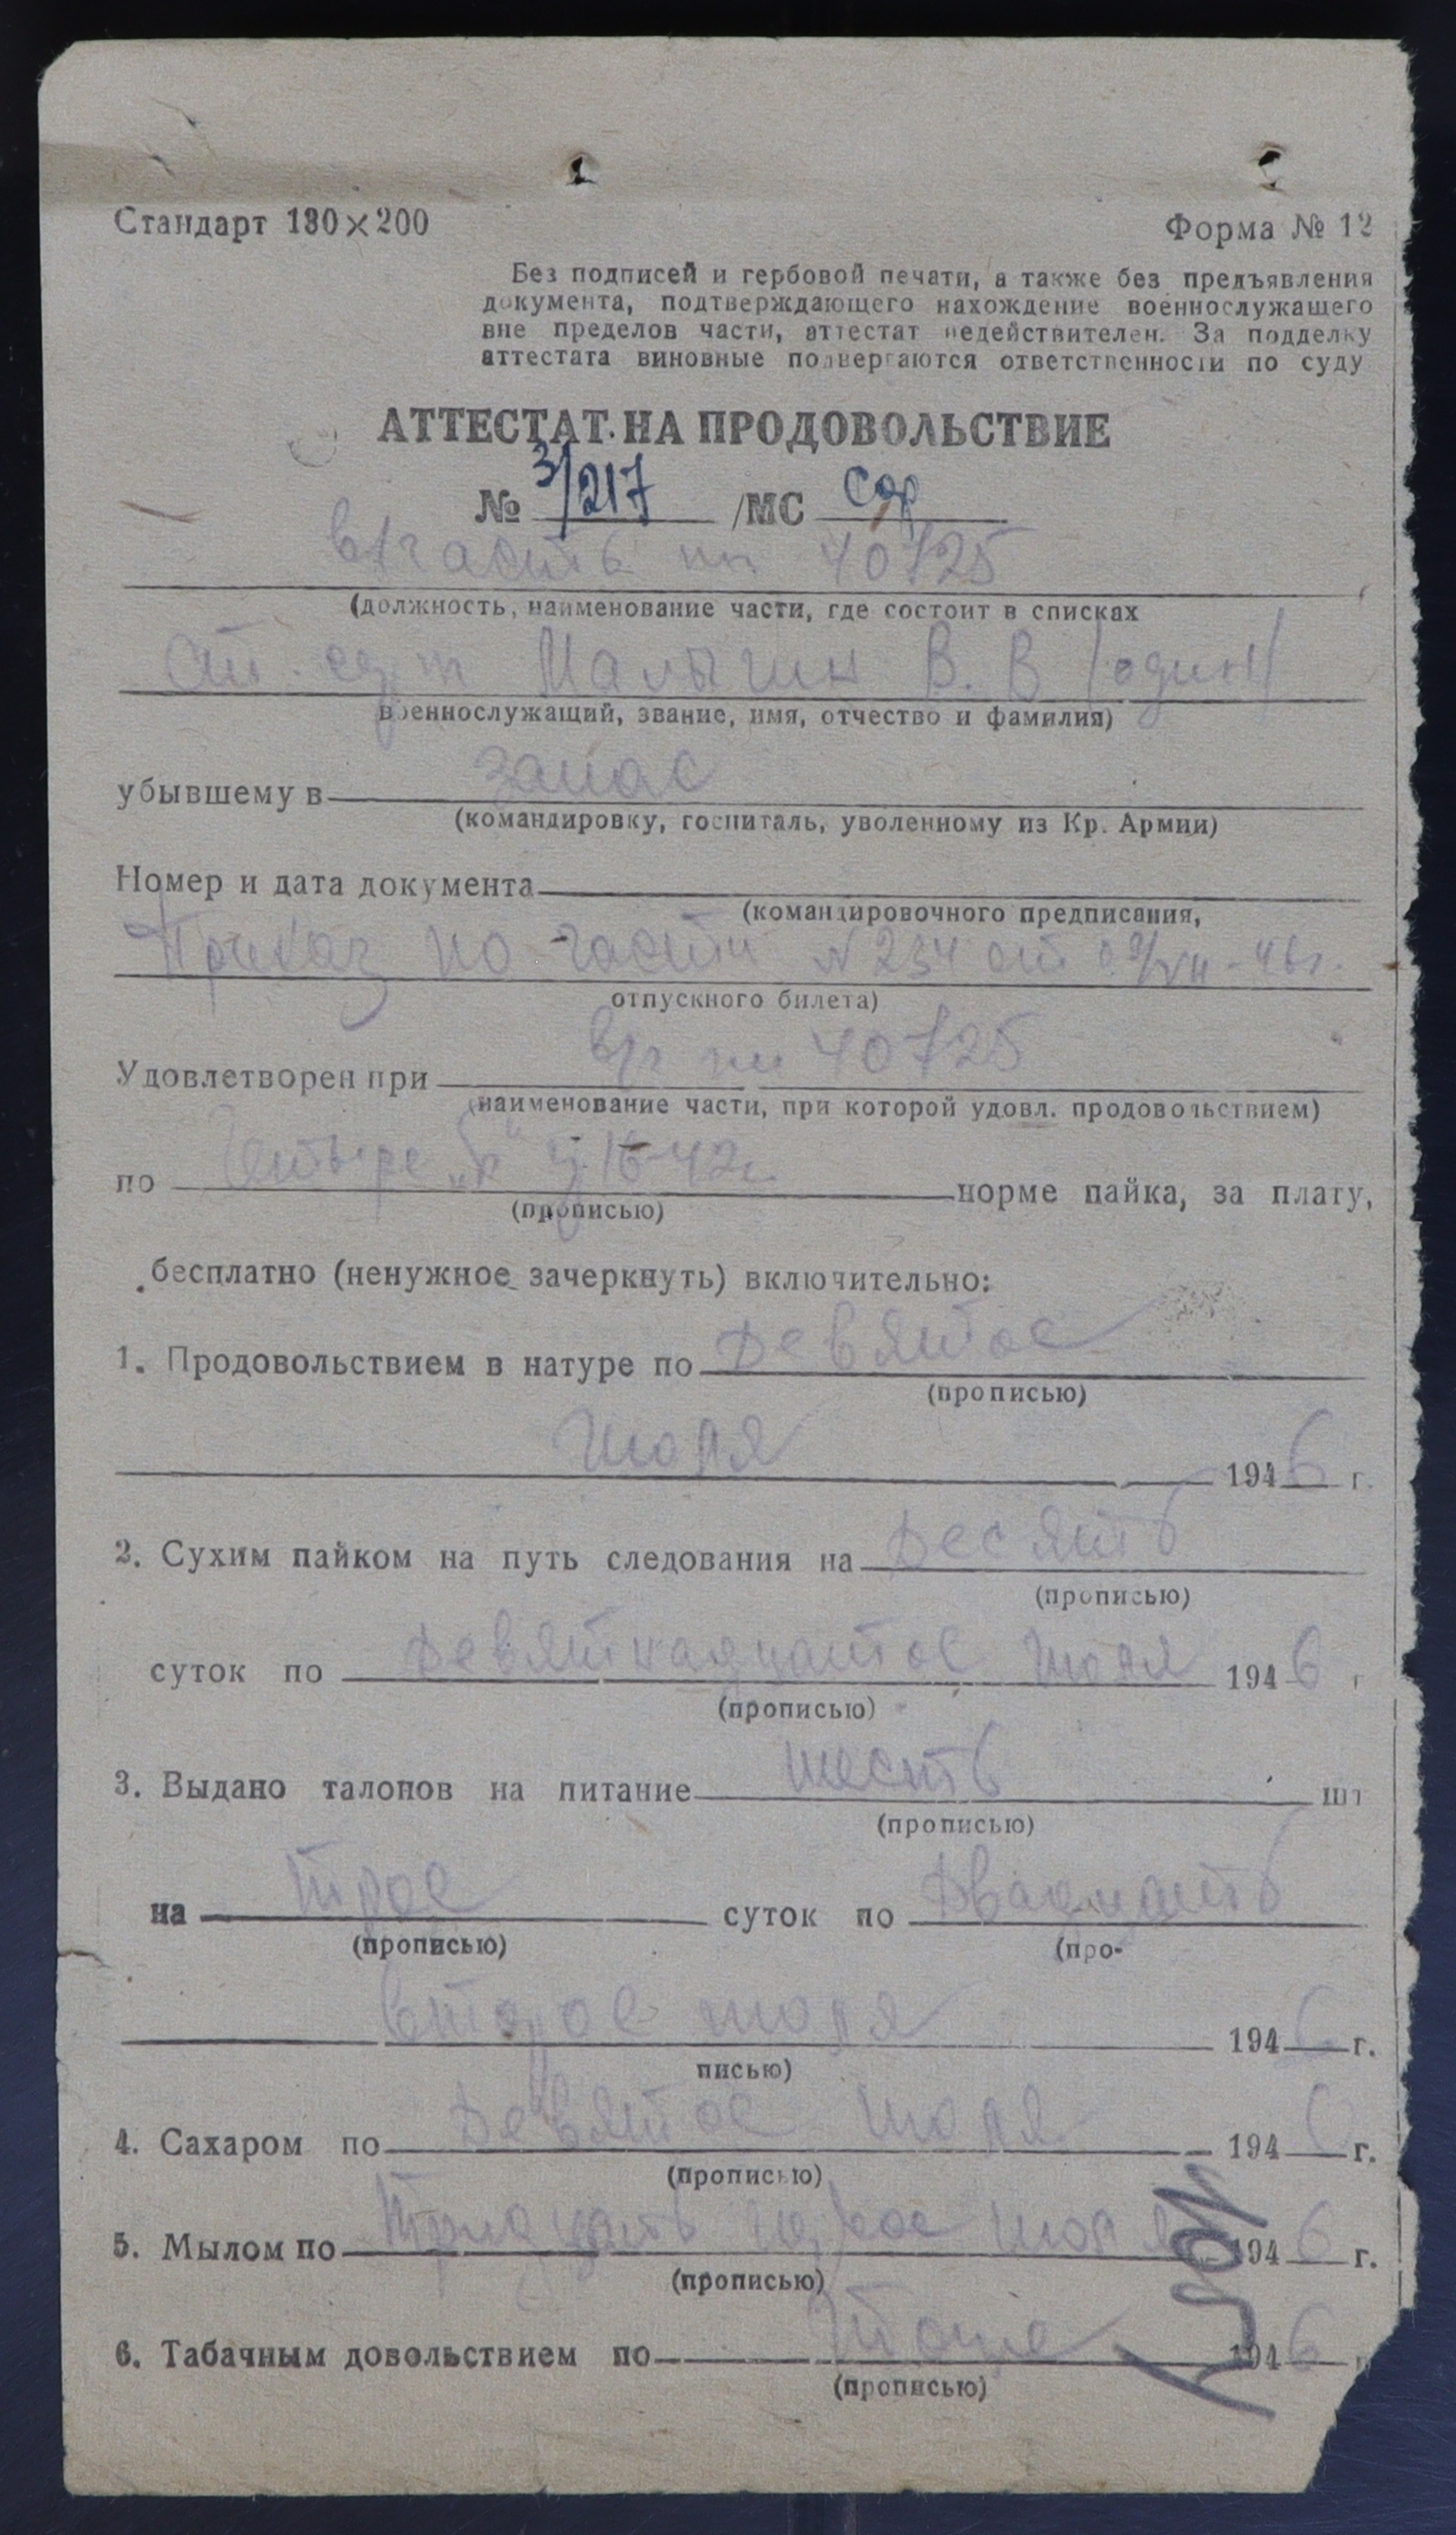 Стандарт 130×200
Форма № 12
Без подписей и гербовой печати, а также без предъявления
документа, подтверждающего нахождение военнослужащего
вне пределов части, аттестат недействителен. За подделку
аттестата виновные подвергаются ответственности по суду
АТТЕСТАТ НА ПРОДОВОЛЬСТВИЕ
№ 3/217 /МС
в/часть пп 40725
(должность, наименование части, где состоит в списках
Малыгин В. В /один/
военнослужащий, звание, имя, отчество и фамилия)
убывшему в запас
(командировку, госпиталь, уволенному из Кр. Армии)
Номер и дата документа
(командировочного предписания,
Приказ по части № 234 от 09/VII-46г.
отпускного билета)
Удовлетворен при в/ч пп 40725
(наименование части, при которой удовл. продовольствием)
по Четыре норме пайка, за плату,
(прописью)
бесплатно (ненужное зачеркнуть) включительно:
1. Продовольствием в натуре по Девятое
(прописью)
июля 1946 г.
2. Сухим пайком на путь следования на Десять
(прописью)
суток по Девятнадцатое июля 1946 г
(прописью)
3. Выдано талонов на питание шесть шт
(прописью)
на трое суток по Двадцать
(прописью) (про-
второе июля 1946 г.
писью)
4. Сахаром по Девятое июля 1946 г.
(прописью)
5. Мылом по Тридцать первое июля 1946 г.
(прописью)
6. Табачным довольствием по Тоже 1946 г
(прописью)